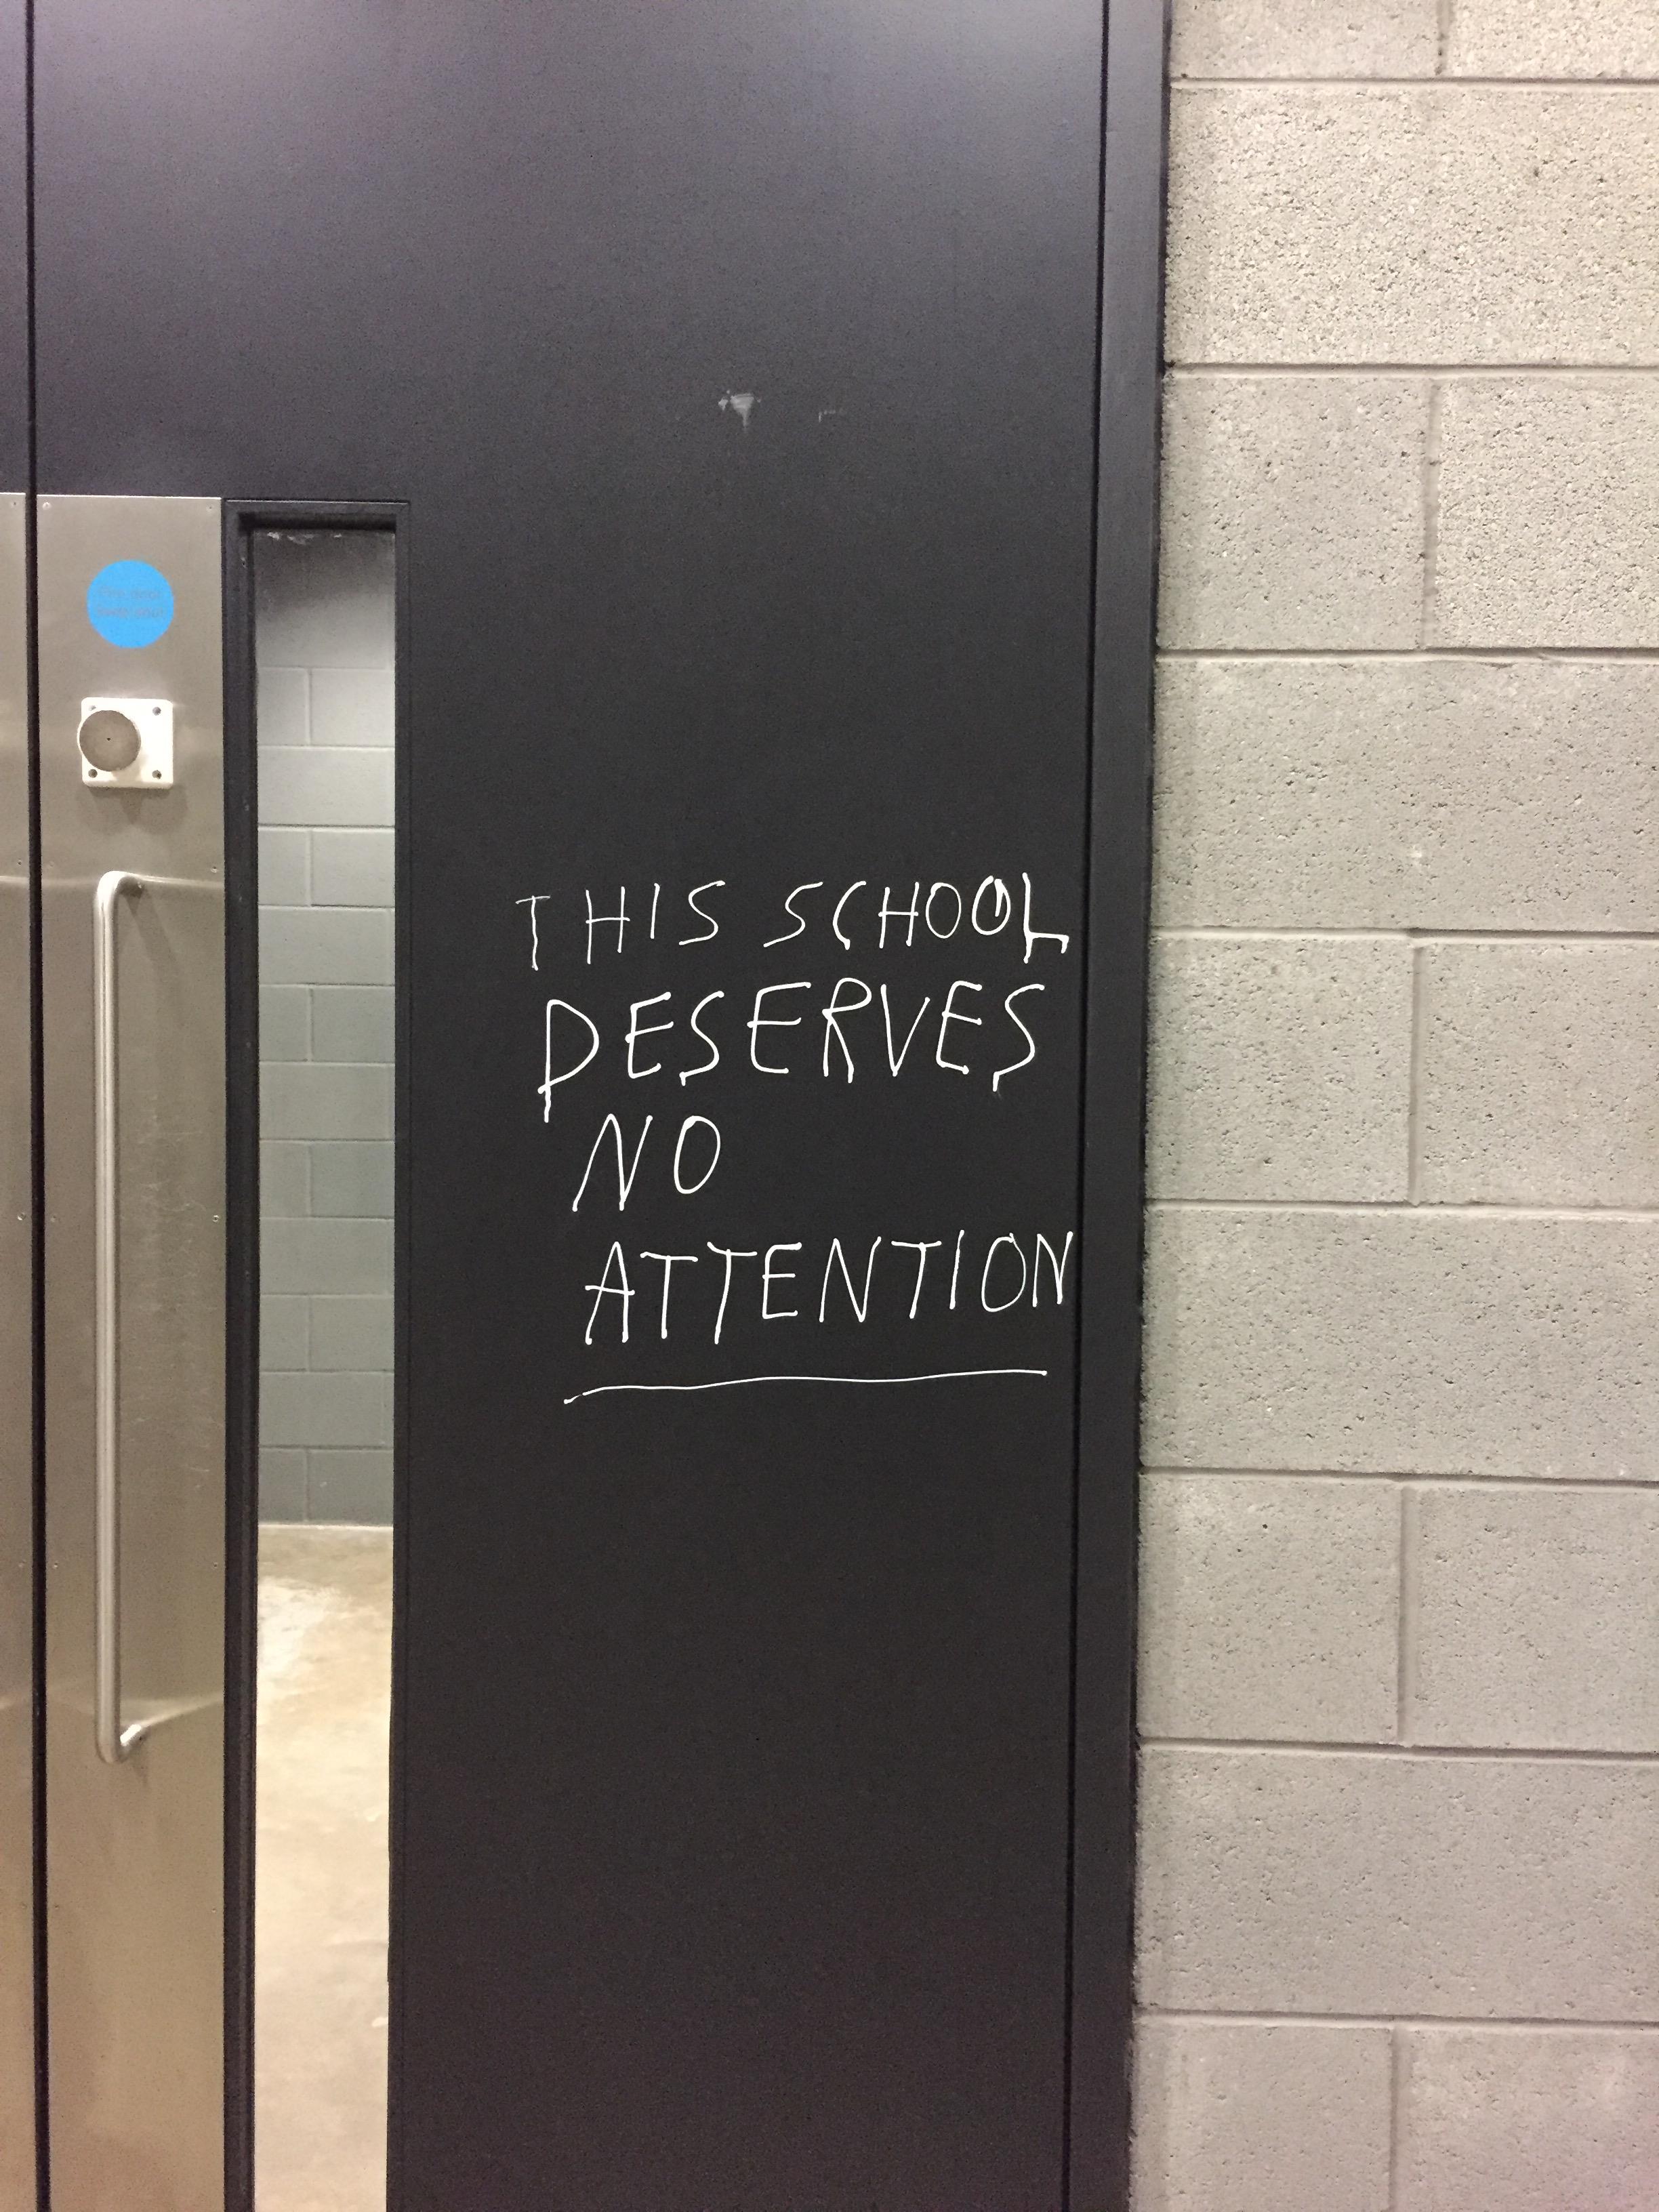 THIS SCHOOL
DESERVES
NO
ATTENTION